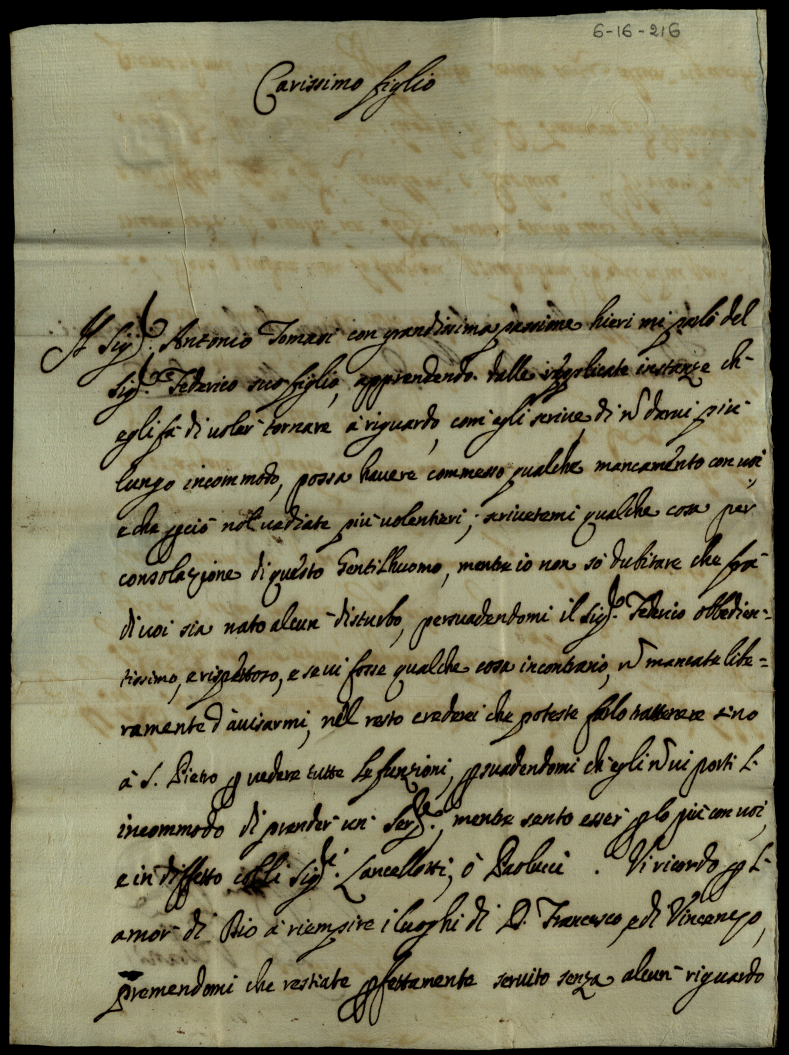 6-16-216
Carissimo figlio
Il Sig.r Antonio Tomasi con grandissima passione hieri mi parlò del
Sig.r Federico suo figlio, apprendendo dalle replicate instanze che
egli fà di voler tornare à riguardo, com'egli scrive di nõ darvi più
lungo incommodo, possa havere commesso qualche mancamento con voi,
e che pciò nol vediate più volentieri; scrivetemi qualche cosa per
consolazione di questo Gentilhuomo, mentre io non sò dubitare che frà
di voi sia nato alcun disturbo, persuadendomi il Sig.r Federico obbedien=
tissimo, e rispettoso, e se vi fosse qualche cosa incontrario, nõ mancate libe=
ramente d'avisarmi, nel resto crederei che poteste farlo trattenere sino
à S. Pietro p vedere tutte le funzioni, psuadendomi ch'egli nõ vi porti l'
incommodo di prender un Ser.re, mentre sento esser p lo più con voi,
e in diffetto colli Sig.ri Lancellotti, ò Paolucci. Vi ricordo p l'
amor di Dio à riempire i luoghi di D. Francesco, e di Vincenzo,
premendomi che restiate pfettamente servito senza alcun riguardo